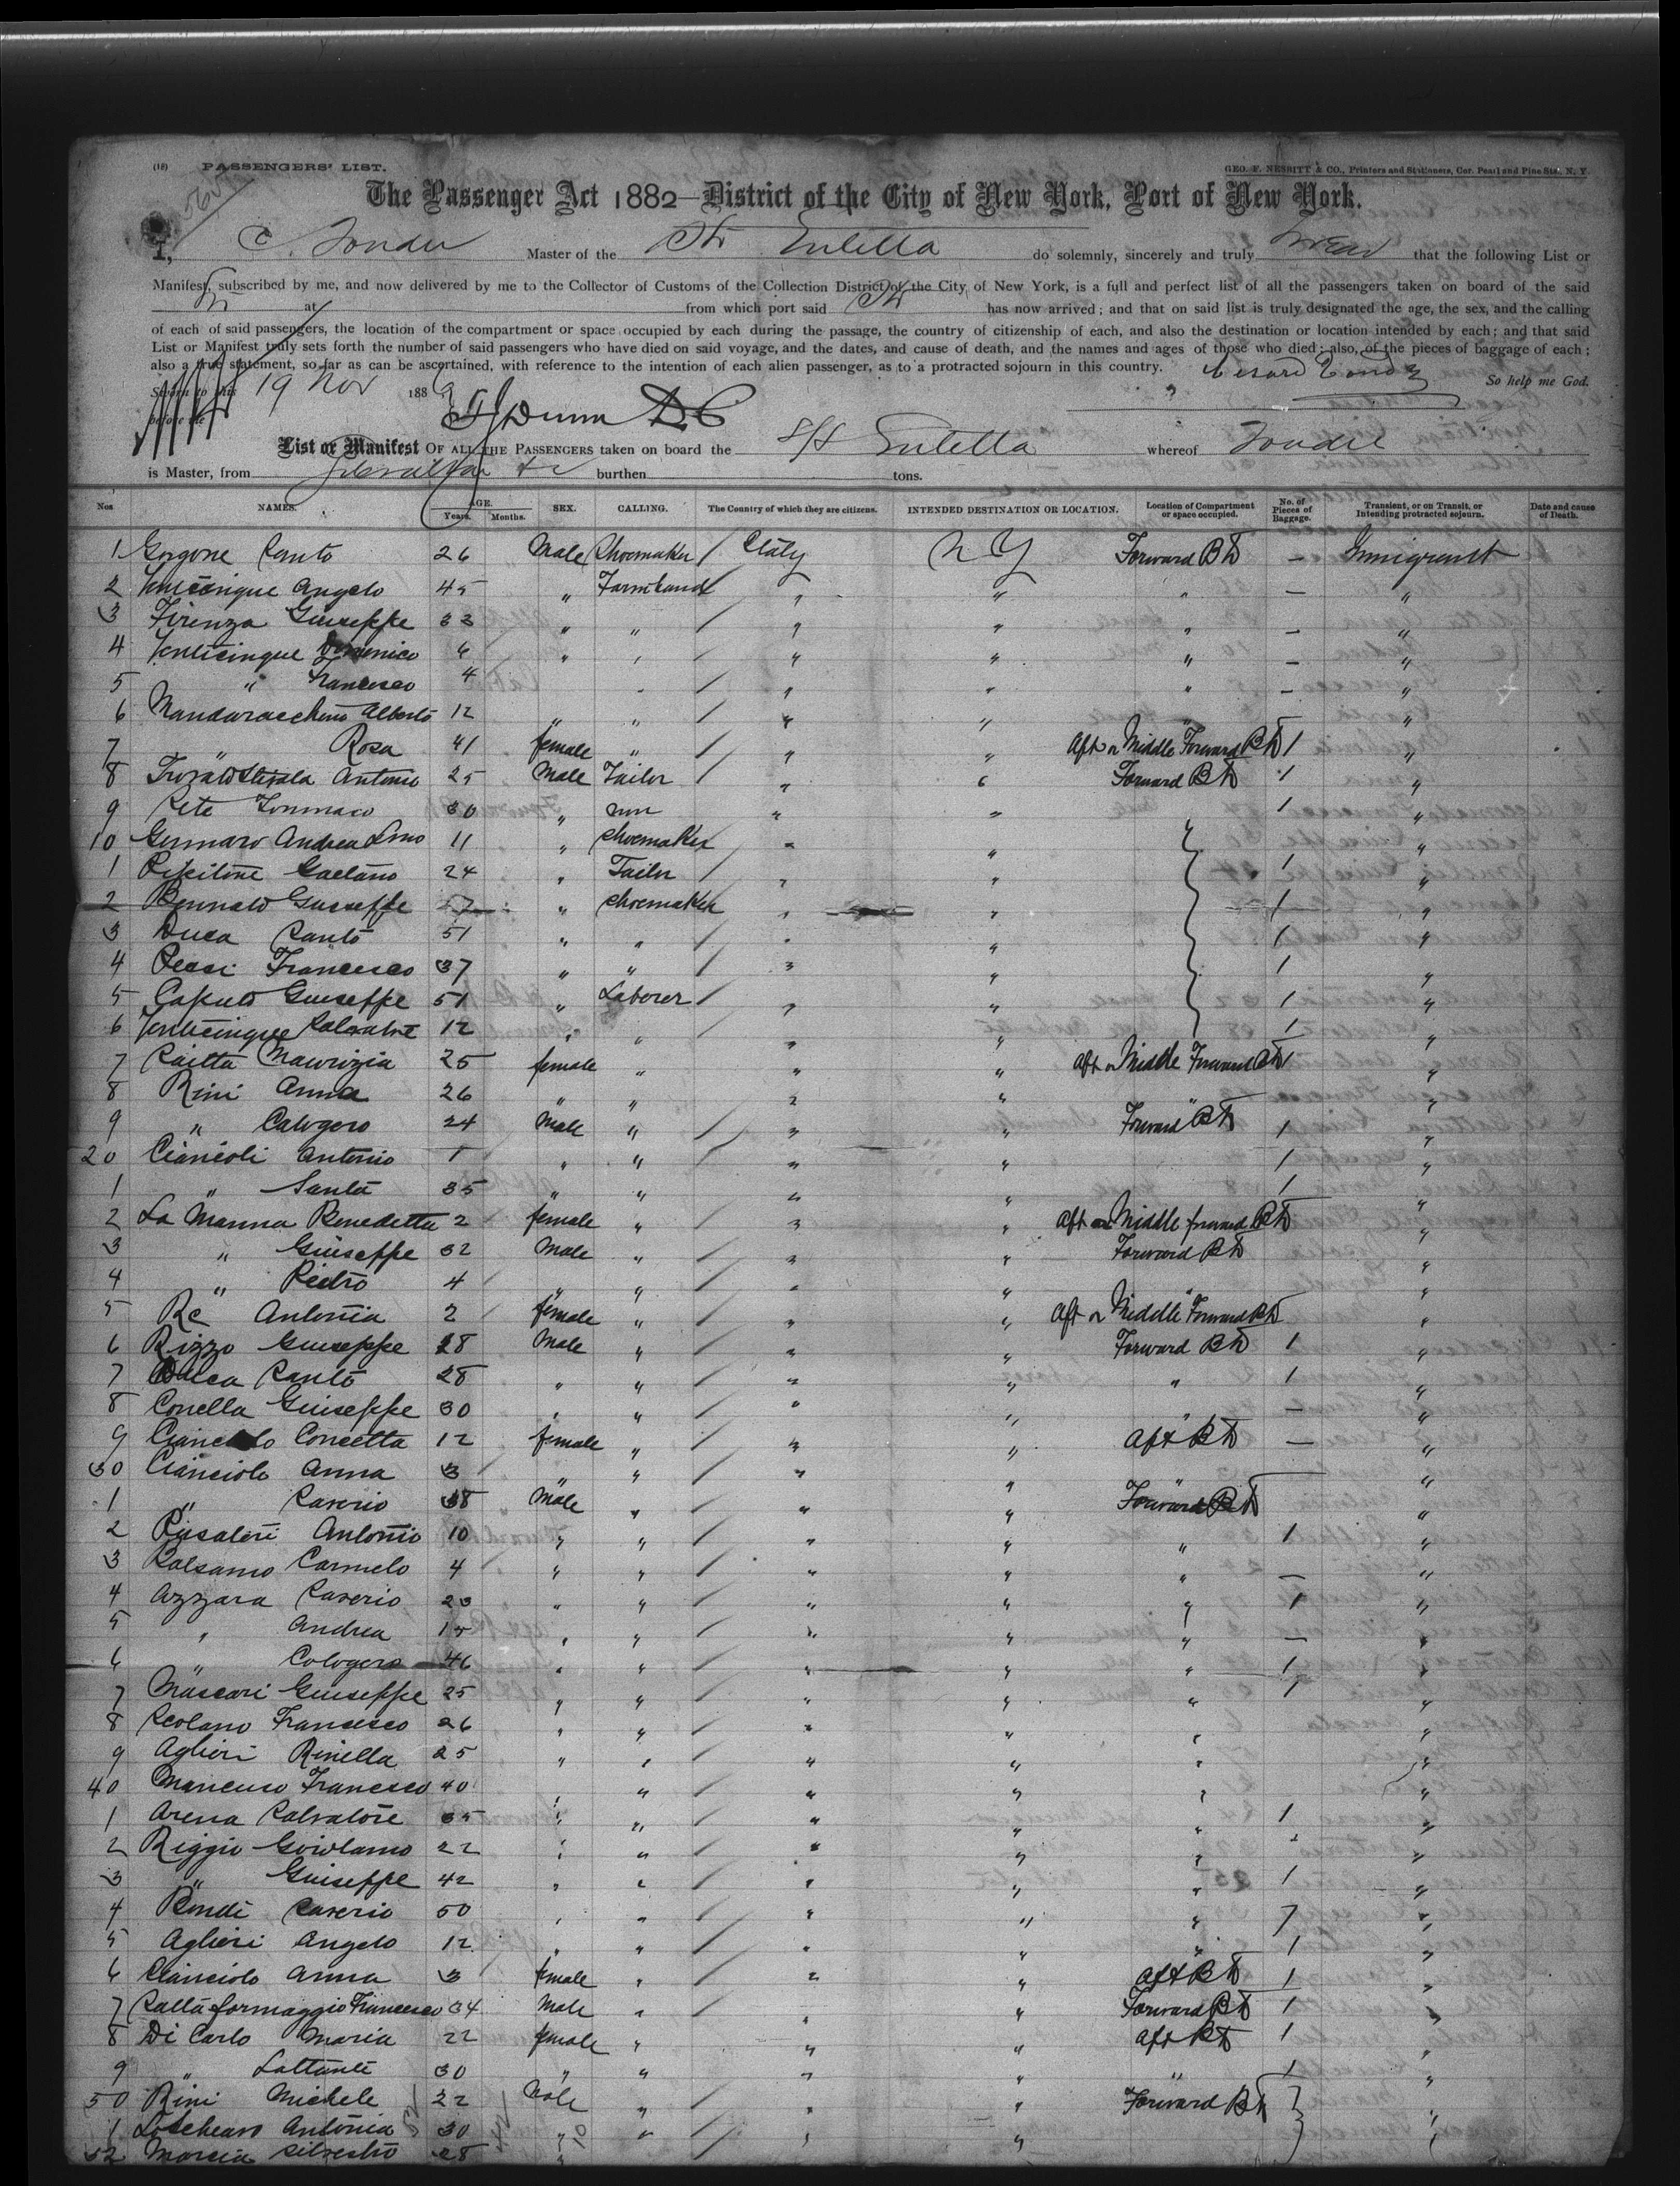 (18) PASSENGERS' LIST. GEO. F. NESBITT & CO., Printers and Stationers, Cor. Pearl and Pine Sts. N. Y.
The Passenger Act 1882—District of the City of New York, Port of New York.
I, Master of the Str Entella do solemnly, sincerely and truly swear that the following List or
Manifest, subscribed by me, and now delivered by me to the Collector of Customs of the Collection District of the City of New York, is a full and perfect list of all the passengers taken on board of the said
Str at from which port said Str has now arrived; and that on said list is truly designated the age, the sex, and the calling
of each of said passengers, the location of the compartment or space occupied by each during the passage, the country of citizenship of each, and also the destination or location intended by each; and that said
List or Manifest truly sets forth the number of said passengers who have died on said voyage, and the dates, and cause of death, and the names and ages of those who died; also, of the pieces of baggage of each;
also a true statement, so far as can be ascertained, with reference to the intention of each alien passenger, as to a protracted sojourn in this country. So help me God.
Sworn to this 19 Nov 188
before me
List or Manifest OF ALL THE PASSENGERS taken on board the S/S Entella whereof
is Master, from Gibraltar &c burthen tons.
Nos NAMES. AGE. Years. Months. SEX. CALLING. The Country of which they are citizens. INTENDED DESTINATION OR LOCATION. Location of Compartment or space occupied. No. of Pieces of Baggage. Transient, or on Transit, or Intending protracted sojourn. Date and cause of Death.
1 Gorgone Santo 26 Male Shoemaker / Italy N Y Forward BD — Immigrant
2 Venticinque Angelo 45 " Farmhand / " " " — "
3 Firenza Giuseppe 33 " " / " " " — "
4 Venticinque Domenico 6 " " / " " " — "
5 " Francesco 4 " / " " " — "
6 Alberto 12 " " / " " " "
7 " Rosa 41 female " / " " Aft or Middle Forward BD 1 "
8 Antonio 25 Male Tailor / " " Forward BD 1 "
9 Tommaso 30 " " " 1 "
10 Gennaro Andrea 11 " Shoemaker / " " "
1 Pipitone Gaetano 24 " Tailor / " " 1 "
2 Bennato Giuseppe " Shoemaker " " 1 "
3 Duca Santo 51 " " / " " 1 "
4 Francesco 37 " " / " " 1 "
5 Caputo Giuseppe 51 " Laborer / " " 1 "
6 Venticinque Salvatore 12 " " / " " 1 "
7 Saitta Maurizia 25 female " / " " Aft or Middle Forward BD 1 "
8 Rini Anna 26 " " / " " " "
9 " Calogero 24 Male " / " " Forward BD 1 "
20 Ciancoli Antonio 1 " " / " " 1 "
1 " Santa 35 " " / " " 1 "
2 La Manna Benedetta 2 female " / " " Aft or Middle forward BD "
3 " Giuseppe 32 Male " / " " Forward BD "
4 " Pietro 4 " " / " " " "
5 Re Antonia 2 female " / " " Aft or Middle Forward BD "
6 Rizzo Giuseppe 28 Male " / " " Forward BD 1 "
7 Duca Santo 28 " " / " " " 1 "
8 Conella Giuseppe 30 " " / " " " — "
9 Concetta 12 female " / " " Aft BD — "
30 Cianciolo Anna 3 " " / " " " "
1 " Saverio 38 Male " / " " Forward BD "
2 Antonio 10 " " / " " " 1 "
3 Balsamo Carmelo 4 " " / " " " — "
4 Azzara Saverio 23 " " / " " " 1 "
5 " Andrea 15 " " / " " " — "
6 " Cologero 46 " " / " " " 1 "
7 Mascari Giuseppe 25 " " / " " " 1 "
8 Scolano Francesco 26 " " / " " " "
9 Aglieri Rinella 25 " " / " " " "
40 Mancuso Francesco 40 " " / " " " "
1 Arena Salvatore 35 " " / " " " 1 "
2 Riggio Girolamo 22 " " / " " " "
3 " Giuseppe 42 " " / " " " 1 "
4 Saverio 50 " " / " " " 7 "
5 Aglieri Angelo 12 " " / " " " 1 "
6 Cianciolo Anna 3 female " / " " Aft BD 1 "
7 Saltaformaggio Francesco 34 Male " / " " Forward BD 1 "
8 Di Carlo Maria 22 female " / " " Aft BD 1 "
9 " 30 " " / " " " 1 "
50 Rini Michele 22 Male " / " " Forward BD "
1 Antonia 30 " " / " " "
52 Silvestro 28 "